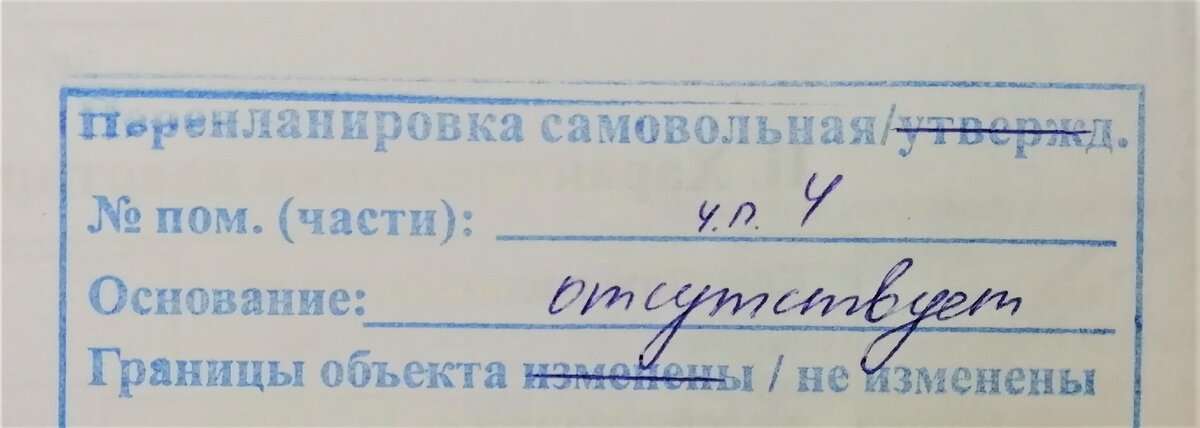 Перепланировка самовольная/утвержд.
№ пом. (части): ч.п. 4
Основание: отсутствует
Границы объекта изменены / не изменены